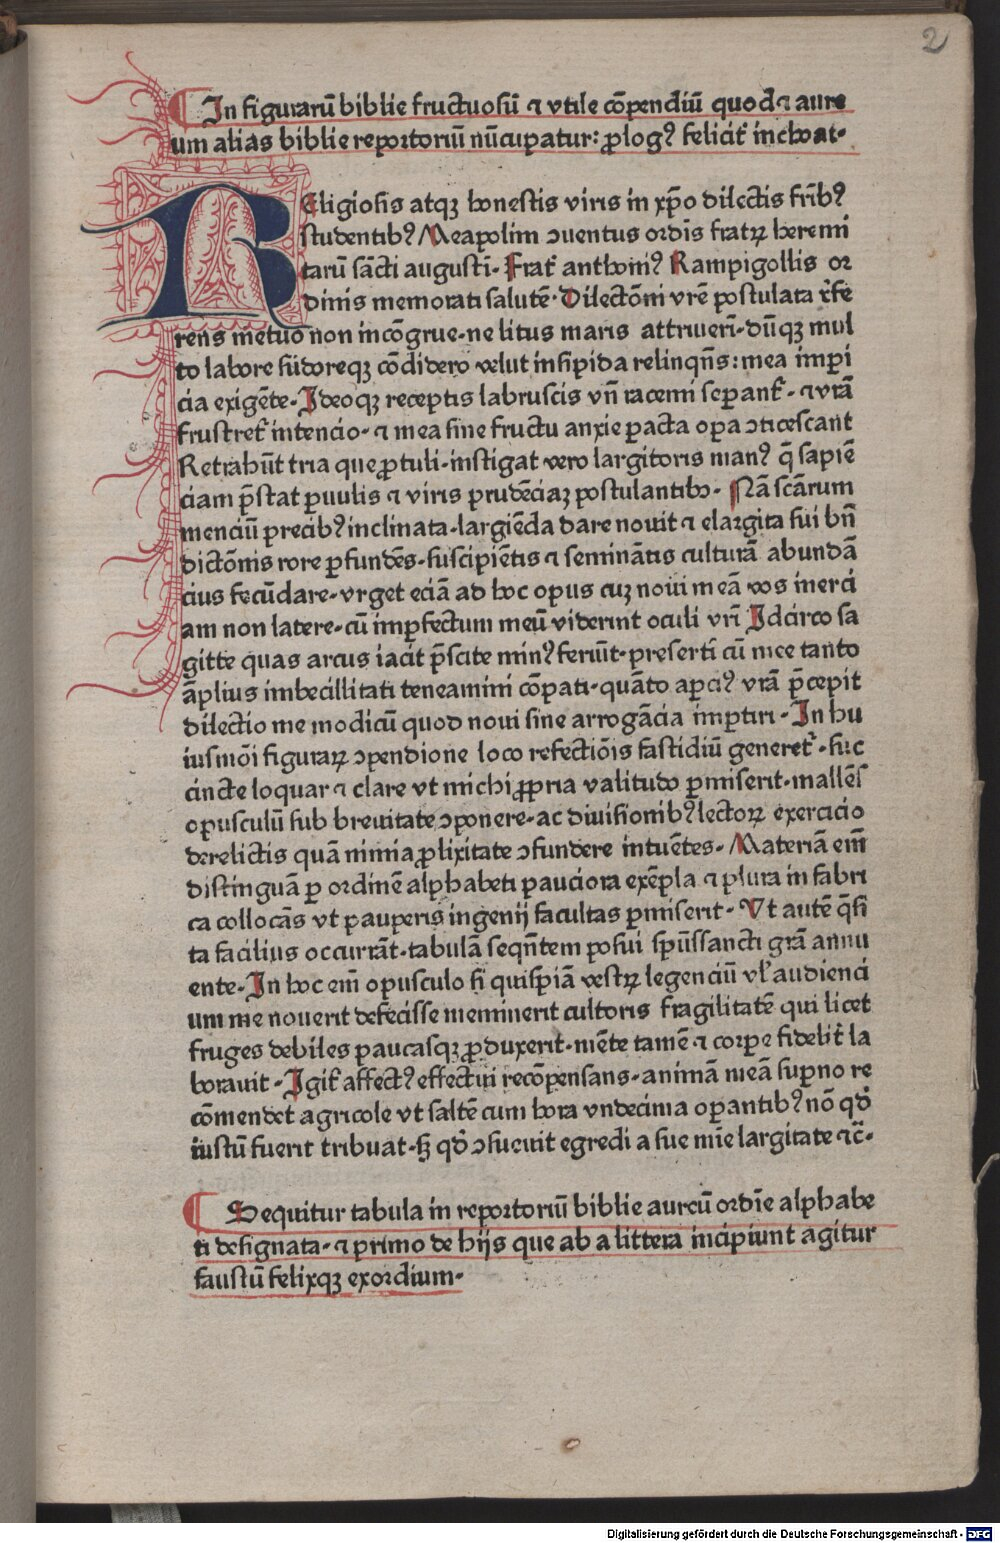 2
In figurarū biblie fructuosū ⁊ vtile cōpendiū quod ⁊ aure
um alias biblie reportoriū nūcupatur: ꝓlogꝰ felicit̄ inchoat·
REligiosis atqꝫ honestis viris in xp̄o dilectis frībꝰ
studentibꝰ Neapolim ↄuentus ordīs fratꝝ heremi
tarū sācti augustī· Frat̄ anthoniꝰ Rampigollis or
dinis memorati salutē· Dilectōni vrē postulata r̄fe
rens metuo non incōgrue·ne litus maris attriuerī·dūqꝫ mul
to labore sudoreqꝫ cōdidero velut insipida relinqn̄s: mea imꝑi
cia exigēte· Ideoqꝫ receptis labruscis vn̄ racemi seꝑant̄· ⁊ vrā
frustret̄ intencio· ⁊ mea sine fructu anxie ꝑacta oꝑa ↄticescant
Retrahūt tria que ꝓtuli·instigat vero largitoris manꝰ q̄ sapiē
ciam p̄stat ꝑuulis ⁊ viris prudēciaꝫ postulantibꝰ· Nā scārum
menciū precibꝰ inclinata·largiēda dare nouit ⁊ elargita sui bn̄
dictōnis rore ꝑfundēs·suscipiētis ⁊ seminātis culturā abundā
cius fecūdare·vrget eciā ad hoc opus cuꝫ noui meā vos inerci
am non latere·cū imꝑfectum meū viderint oculi vrī Idcirco sa
gitte quas arcus iacit p̄scite minꝰ feriūt·presertī cū mee tanto
āplius imbecillitati teneamini cōpati·quāto aꝑciꝰ vrā p̄cepit
dilectio me modicū quod noui sine arrogācia imꝑtiri· In hu
iusmōi figuraꝝ ↄpendione loco refectiōis fastidiū generet̄·suc
cincte loquar ⁊ clare vt michi ꝓpria valitudo ꝑmiserit·mallēs
opusculū sub breuitate ↄponere·ac diuisionibꝰ lectoꝝ exercicio
derelictis quā nimia ꝓlixitate ↄfundere intuētes· Materiā em̄
distinguā ꝑ ordinē alphabeti pauciora exēpla ⁊ plura in fabri
ca collocās vt pauperis ingenij facultas ꝑmiserit· Vt autē q̄si
ta facilius occurrāt·tabulā seqn̄tem posui sp̄ussancti grā annu
ente· In hoc em̄ opusculo si quispiā vestꝝ legenciū vl̓ audienci
um me nouerit defecisse meminerit cultoris fragilitatē qui licet
fruges debiles paucasqꝫ ꝓduxerit·mēte tamē ⁊ corpe fidelit̄ la
borauit· Igit̄ affectꝰ effectui recōpensans·animā meā suꝑno re
cōmendet agricole vt saltē cum hora vndecima oꝑantibꝰ nō qd̓
iustū fuerit tribuat·sꝫ qd̓ ↄsueuit egredi a sue mīe largitate ⁊c̄·
Sequitur tabula in reportoriū biblie aureū ordīe alphabe
ti designata· ⁊ primo de hijs que ab a littera incipiunt agitur
faustū felixqꝫ exordium·
Digitalisierung gefördert durch die Deutsche Forschungsgemeinschaft - DFG